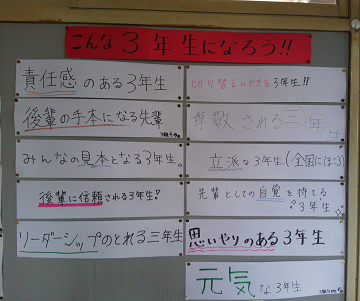 こんな3年生になろう!!
責任感のある3年生
後輩の手本になる先輩
みんなの見本となる3年生。
後輩に信頼される3年生!
リーダーシップのとれる三年生
切り替えのできる3年生!!
尊敬される三年生
立派な3年生(全国にほこる)
先輩としての自覚を持てる
3年生
思いやりのある3年生
元気な3年生